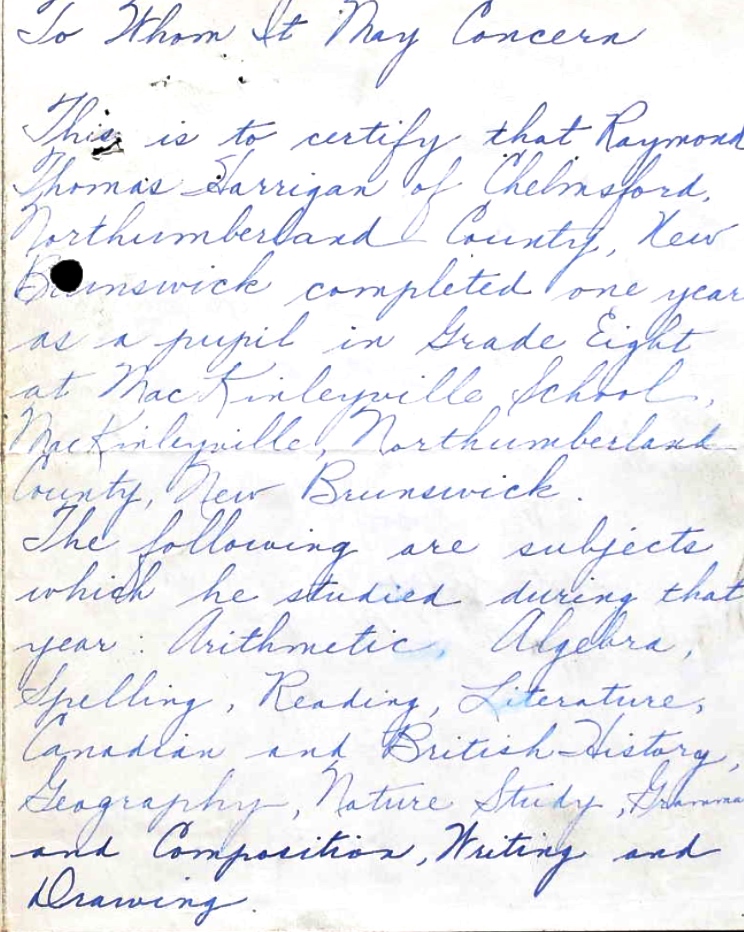 To Whom It May Concern
This is to certify that Raymond
Thomas Harrigan of Chelmsford,
Northumberland County, New
Brunswick completed one year
as a pupil in Grade Eight
at MacKinleyville School,
MacKinleyville, Northumberland
County, New Brunswick.
The following are subjects
which he studied during that
year: Arithmetic, Algebra,
Spelling, Reading, Literature,
Canadian and British History,
Geography, Nature Study, Gramma
and Composition, Writing and
Drawing.